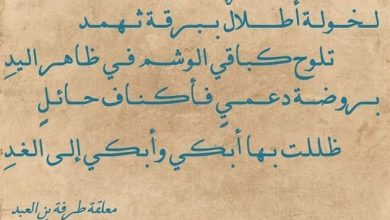 لخولة أطلالٌ ببرقة ثهمد
تلوح كباقي الوشم في ظاهر اليدِ
بروضة دعميٍ فأكناف حائلٍ
ظللت بها أبكي وأبكي إلى الغدِ
معلقة طرفة بن العبد